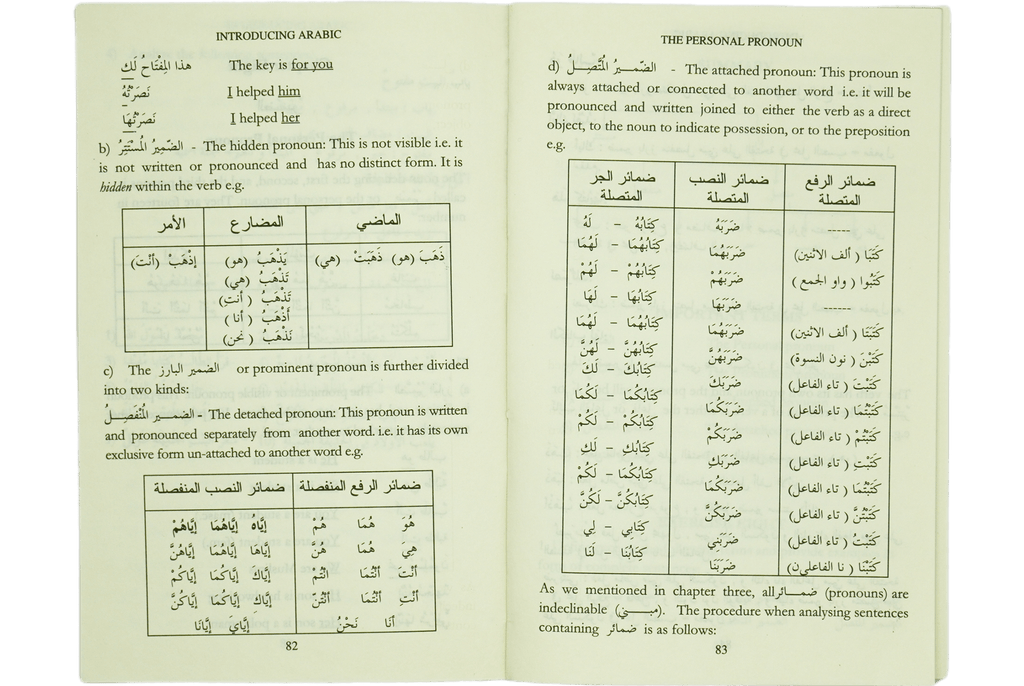 INTRODUCING ARABIC
هذا المِفْتَاحُ لَكَ The key is for you
نَصَرْتُهُ I helped him
نَصَرْتُهَا I helped her
b) الضَّمِيرُ المُسْتَتِرُ - The hidden pronoun: This is not visible i.e. it
is not written or pronounced and has no distinct form. It is
hidden within the verb e.g.
الماضي المضارع الأمر
ذَهَبَ (هو) ذَهَبَتْ (هي) يَذْهَبُ (هو) إذْهَبْ (أنْتَ)
تَذْهَبُ (هي)
تَذْهَبُ ( أنتَ)
أَذْهَبُ ( أنا )
نَذْهَبُ ( نحن)
c) The الضمير البارز or prominent pronoun is further divided
into two kinds:
الضمـــير المُنْفَصِـــلُ - The detached pronoun: This pronoun is written
and pronounced separately from another word. i.e. it has its own
exclusive form un-attached to another word e.g.
ضمائر الرفع المنفصلة ضمائر النصب المنفصلة
هُوَ هُمَا هُمْ إيَّاهُ إيَّاهُمَا إيَّاهُمْ
هِيَ هُمَا هُنَّ إيَّاهَا إيَّاهُمَا إيَّاهُنَّ
أنْتَ أنْتُمَا أنْتُمْ إيَّاكَ إيَّاكُمَا إيَّاكُمْ
أنْتِ أنْتُمَا أنْتُنَّ إيَّاكِ إيَّاكُمَا إيَّاكُنَّ
أنَا نَحْنُ إيَّايَ إيَّانَا
82
THE PERSONAL PRONOUN
d) الضَّمِـــيرُ المُتَّصِـــلُ - The attached pronoun: This pronoun is
always attached or connected to another word i.e. it will be
pronounced and written joined to either the verb as a direct
object, to the noun to indicate possession, or to the preposition
e.g.
ضمائر الرفع ضمائر النصب ضمائر الجر
المتصلة المتصلة المتصلة
----- ضَرَبَهُ كِتَابُهُ – لَهُ
كَتَبَا ( ألف الاثنين) ضَرَبَهُمَا كِتَابُهُمَا – لَهُمَا
كَتَبُوا ( واو الجمع ) ضَرَبَهُمْ كِتَابُهُمْ – لَهُمْ
----- ضَرَبَهَا كِتَابُهَا – لَهَا
كَتَبَتَا ( ألف الاثنين) ضَرَبَهُمَا كِتَابُهُمَا – لَهُمَا
كَتَبْنَ ( نون النسوة) ضَرَبَهُنَّ كِتَابُهُنَّ – لَهُنَّ
كَتَبْتَ ( تاء الفاعل) ضَرَبَكَ كِتَابُكَ – لَكَ
كَتَبْتُمَا ( تاء الفاعل) ضَرَبَكُمَا كِتَابُكُمَا – لَكُمَا
كَتَبْتُمْ ( تاء الفاعل) ضَرَبَكُمْ كِتَابُكُمْ – لَكُمْ
كَتَبْتِ ( تاء الفاعل) ضَرَبَكِ كِتَابُكِ – لَكِ
كَتَبْتُمَا ( تاء الفاعل) ضَرَبَكُمَا كِتَابُكُمَا – لَكُمْ
كَتَبْتُنَّ ( تاء الفاعل) ضَرَبَكُنَّ كِتَابُكُنَّ – لَكُنَّ
كَتَبْتُ ( تاء الفاعل) ضَرَبَنِي كِتَابِي – لِي
كَتَبْنَا ( نا الفاعلين) ضَرَبَنَا كِتَابُنَا – لَنَا
As we mentioned in chapter three, all ضمـــائر (pronouns) are
indeclinable (مبـــني). The procedure when analysing sentences
containing ضمائر is as follows:
83